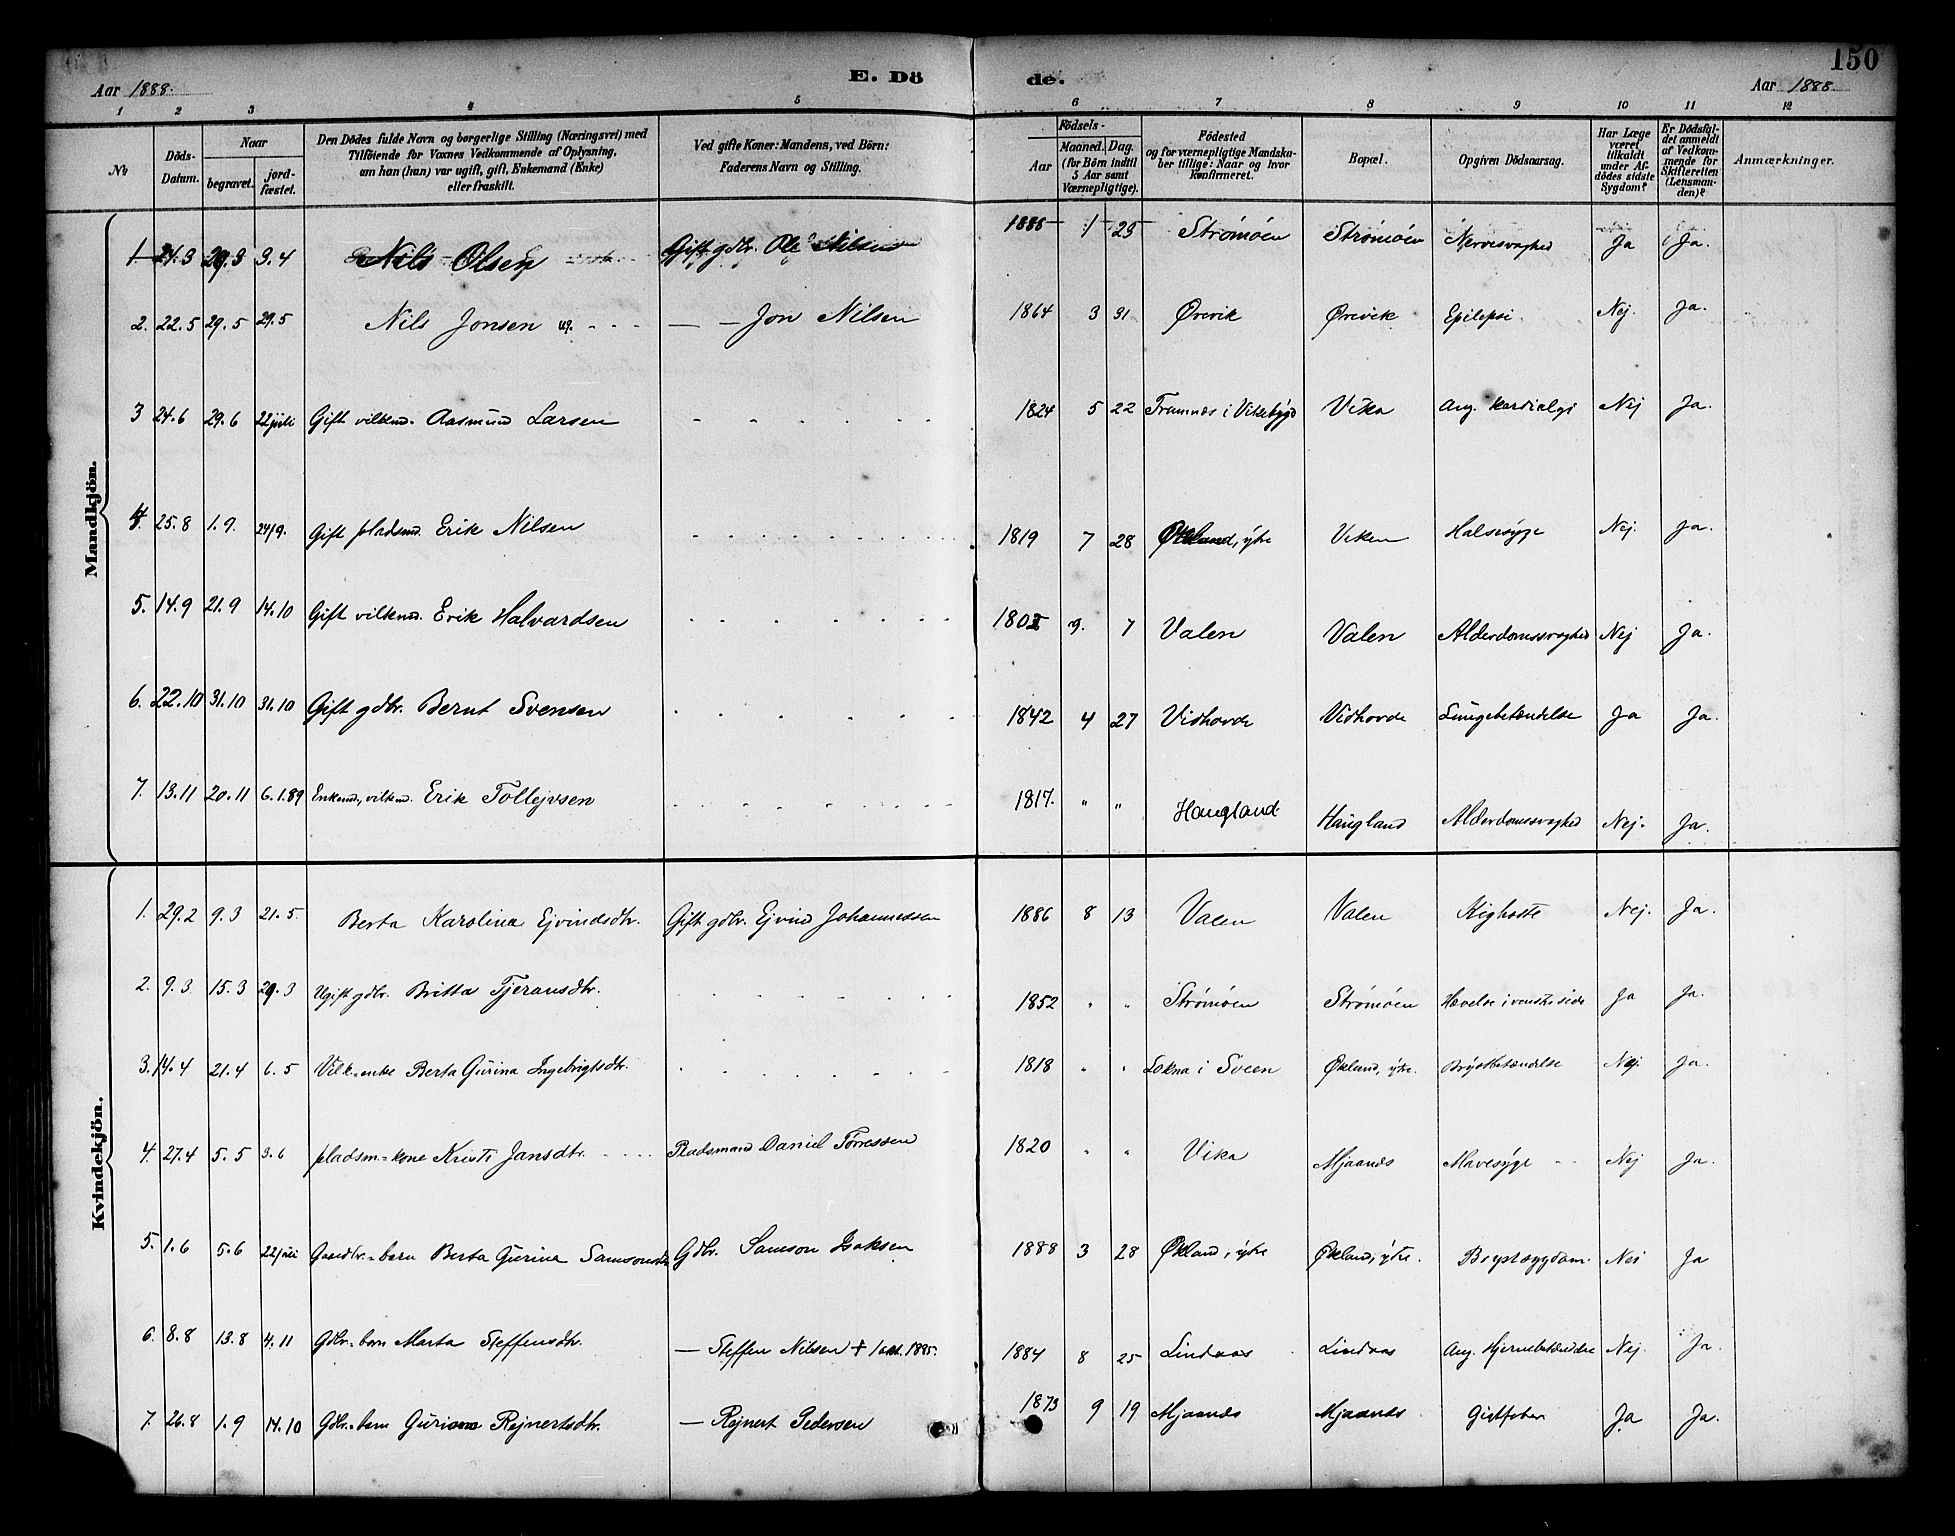 150
Aar 1888. E. Dö de. Aar 1888.
1 2 3 4 5 6 7 8 9 10 11 12
No
Döds-Datum.
Naar
begravet. jord-fæstet.
Den Dödes fulde Navn og borgerlige Stilling (Næringsvei) med
Tilföiende for Voxnes Vedkommende af Oplysning,
om han (hun) var ugift, gift, Enkemand (Enke)
eller fraskilt.
Ved gifte Koner: Mandens, ved Börn:
Faderens Navn og Stilling.
Födsels-
Aar
Maaned. Dag.
(for Börn indtil
5 Aar samt
Værnepligtige).
Födested
og for værnepligtige Mandska-
ber tillige: Naar og hvor
konfirmeret.
Bopæl.
Opgiven Dödsaarsag.
Har Læge
været
tilkaldt
under Af-
dödes sidste
Sygdom?
Er Dödsfal-
det anmeldt
af Vedkom-
mende for
Skifteretten
(Lensman-
den)?
Anmærkninger.
Mandkjön.
1. 21.3 29.3 3.4 Nils Olsen Gift gdbr. Ole Nilsen 1 23 Strømøen Strømøen Nervesvaghed Ja Ja.
2. 22.5 29.5 29.5 Nils Jonsen ug. - - - — — Jon Nilsen 1864 3 31 Ørevik Ørevik Epilepsi. Nej. Ja.
3 24.6 29.6 22 juli Gift vilkmd. Aasmund Larsen 1824 5 22 Framnæs i Vikebygd Vika Ang. Kardialgi Nej Ja.
4. 25.8 1.9. 24/9. Gift pladsmd. Erik Nilsen 1819 7 28 Økland, ytre Viken Halssyge Nej. Ja.
5. 14.9 21.9 14.10 Gift vilkmd. Erik Halvardsen 9. 7 Valen Valen Alderdomssvaghed Nej Ja.
6. 22.10 31.10 31.10 Gift gdbr. Bernt Svensen 1842 4 27 Vidhovde Vidhovde Lungebetændelse Ja Ja.
7. 13.11 20.11 6.1.89 Enkemd., vilkmd. Erik Tollejvsen 1817. " " Haugland Haugland Alderdomssvaghed Nej. Ja.
Kvindekjön.
1. 29.2 9.3 21.5. Berta Karolina Ejvindsdtr. Gift gdbr. Ejvind Johannessen 1886 8 13 Valen Valen Kighoste Nej. Ja.
2. 9.3. 15.3 29.3 Ugift gdbr. Britta Tjeransdtr. 1852 " " Strømøen Strømøen Hævelse i venstre side Ja Ja.
3. 14.4 21.4 6.5 Vilk-enke Berta Gurina Ingebrigtsdtr. 1818 " " Lokna i Sveen Økland, ytre. Brystbetændelse Nej. Ja.
4. 27.4 5.5 3.6 pladsm-kone Kristi Jansdtr. - - - - Pladsmand Daniel Tørressen 1820 " " Vika Mjaanes Mavesyge - - Nej Ja.
5. 1.6 5.6 22 juli Gaardbr.-barn Berta Gurina Samsonsdtr Gdbr. Samson Isaksen 1888 3 28 Økland, ytre Økland, ytre. Brystsygdom. Nei Ja
6. 8.8 13.8 4.11 Gdbr-barn Marta Steffensdtr. — Steffen Nilsen + 1 okt. 1895. 1884 8 25 Lindaas Lindaas Ang. Hjernebetændelse Nej. Ja.
7. 26.8 1.9 14.10 Gdbr-barn Guriana Rejnertsdtr. — Rejnert Pedersen 1873 9 19 Mjaanes Mjaanes Gigtfeber Ja Ja.